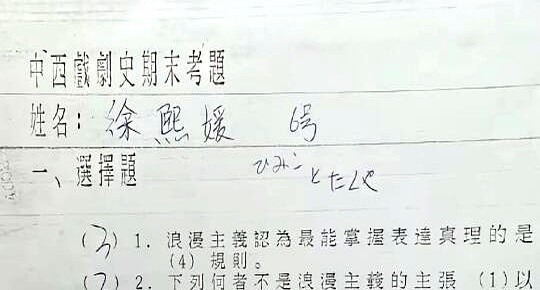 中西戲劇史期末考題
姓名：徐熙媛 6号
一、選擇題
ひみことたくや
(3) 1. 浪漫主義認為最能掌握表達真理的是
(4) 規則。
2. 下列何者不是浪漫主義的主張 (1)以